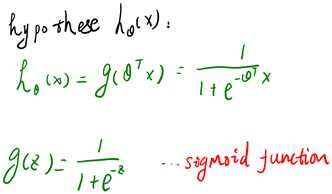 hypothese h_θ(x):
h_θ(x) = g(θ^T x) = 1 / (1 + e^{-θ^T x})
g(z) = 1 / (1 + e^{-z}) ... sigmoid function